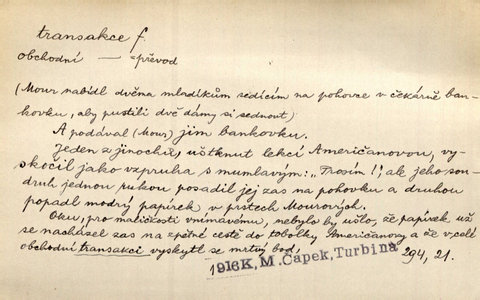 transakce f.
obchodní — =převod
(Mour nabídl dvěma mladíkům sedícím na pohovce v čekárně ban-
kovku, aby pustili dvě dámy si sednout)
A podával (Mour) jim bankovku.
Jeden z jinochů, uštknut lekcí Američanovou, vy-
skočil jako vzpruha s mumlavým: „Prosím!!, ale jeho sou-
druh jednou rukou posadil jej zas na pohovku a druhou
popadl modrý papírek v prstech Mourových.
Oku, pro maličkosti vnímavému, nebylo by ušlo, že papírek už
se nacházel zas na zpětné cestě do tobolky Američanovy a že v celé
obchodní transakci vyskytl se mrtvý bod,
1916 K, M. Čapek, Turbina 294, 21.